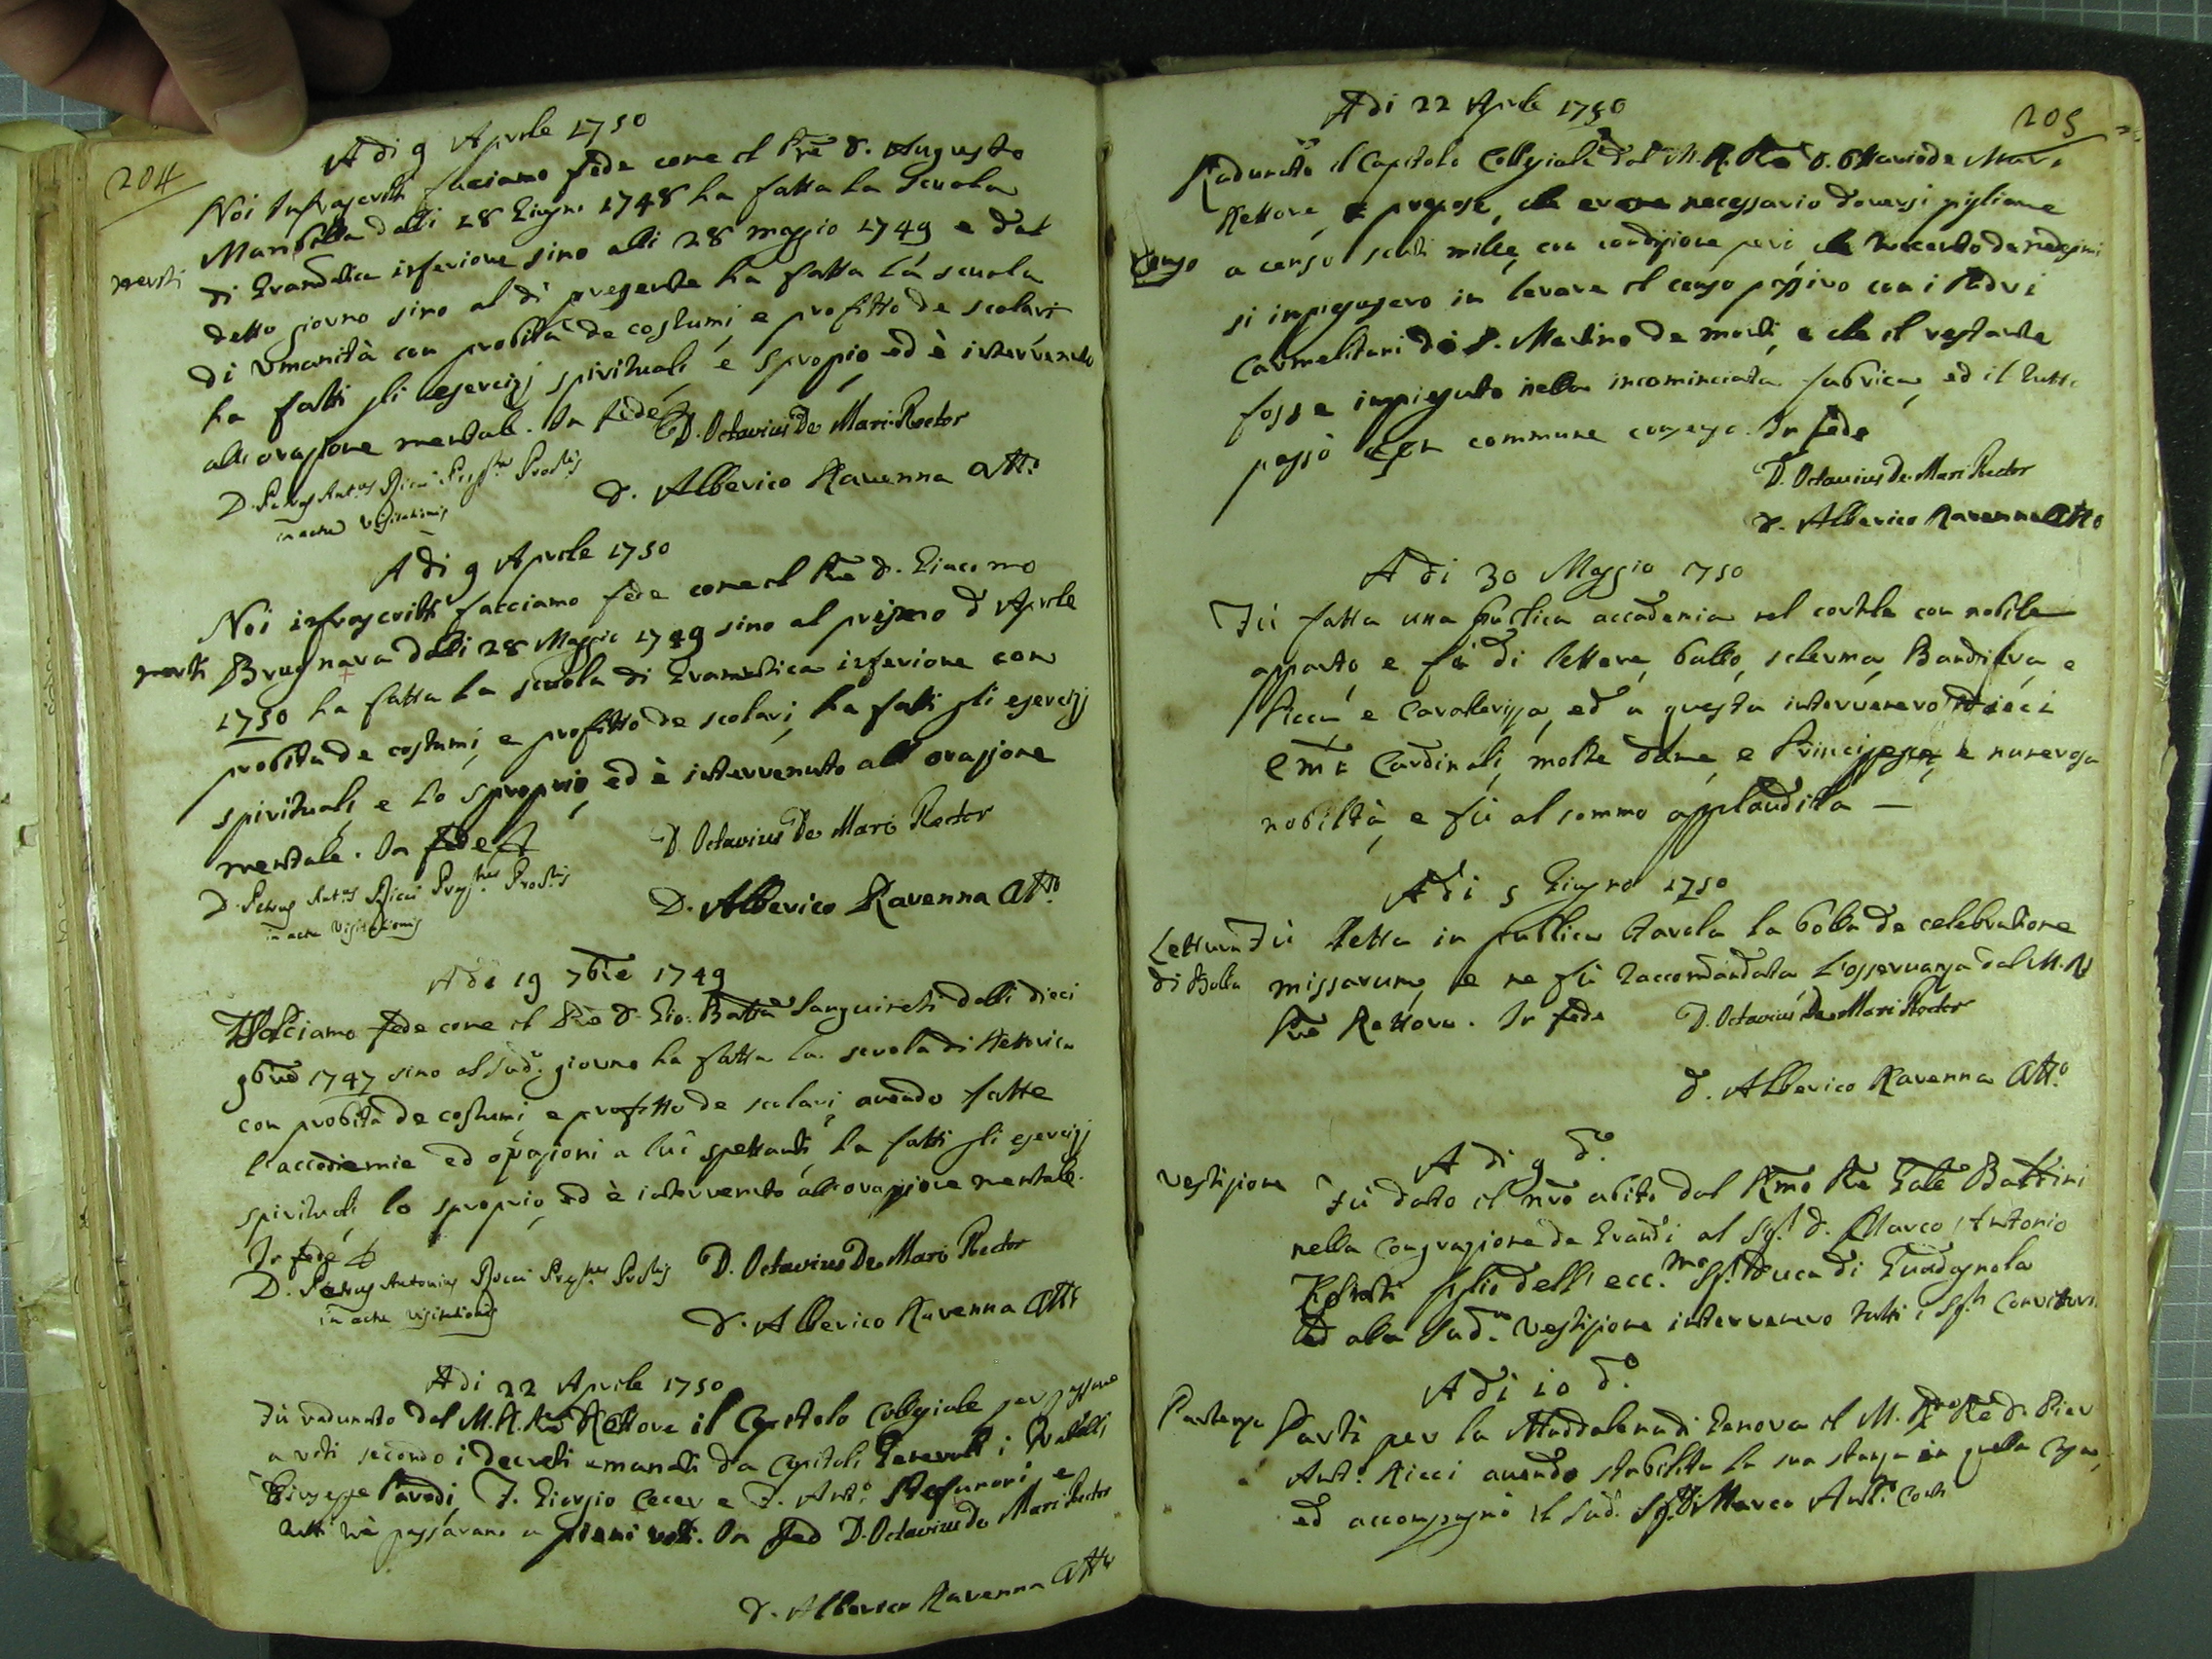 204
A di 9 Aprile 1750
Noi Infrascritti facciamo fede come il Pre D. Augusto
Mandella dalli 28 Giugno 1748 ha fatta la Scuola
di Gramatica inferiore sino alli 28 maggio 1749 e dal
meriti
detto giorno sino al dì presente ha fatta la scuola
di Umanità con probità de costumi, e profitto de scolari
ha fatti gli esercizj spirituali e spropio, ed è intervenuto
all'orazione mentale. In fede
D. Octavius De Mari Rector
D. Petrus Ant.us Ricci
in actu Visitationis
D. Alberico Ravenna Att.o
A di 9 Aprile 1750
Noi infrascritti facciamo fede come il Pre D. Giacomo
meriti
Brugnara dalli 28 Maggio 1749 sino al primo d Aprile
1750 ha fatta la scuola di Gramatica inferiore con
probità de costumi, e profitto de scolari, ha fatti gli esercizj
spirituali, e lo sproprio, ed è intervenuto all orazione
mentale. In fede
D. Octavius De Mari Rector
D. Petrus Ant.us Ricci
in actu Visitationis
D. Alberico Ravenna Att.o
A di 19 7bre 1749
Facciamo fede come il Pre D. Gio: Batta Sanguineti dalli dieci
9bre 1747 sino al sud.o giorno ha fatta la scuola di Rettorica
con probità de costumi, e profitto de scolari, avendo fatte
l'accademie ed orazioni a lui spettanti, ha fatti gli esercizj
spirituali, lo sproprio, ed è intervenuto all'orazione mentale.
In fede
D. Petrus Antonius Ricci
in actu Visitationis
D. Octavius De Mari Rector
D. Alberico Ravenna Att.o
A di 22 Aprile 1750
Fù radunato dal M.R. Pre Rettore il Capitolo Collegiale per
a voti secondo i decreti emanati da Capitoli Generali i Fratelli
Giuseppe Parodi, F. Giorgio Cecer e F. Ant.o e
tutti nè passarano a pieni voti. In fed D. Octavius De Mari Rector
D. Alberico Ravenna Att.o
205
A di 22 Aprile 1750
Radunato il Capitolo Collegiale dal M. R. Pre D. Ottavio de Mari
Rettore, propose, che era necessario doversi pigliare
Censo
a censo scuti mille, con condizione però, che de medesmi
si impiegasero in levare il censo passivo con i Padri
Carmelitani di S. Martino de monti, e che il restante
fosse impiegato nella incominciata fabrica, ed il tutto
passò con commune consenso. In fede
D. Octavius De Mari Rector
D. Alberico Ravenna Atto
A di 30 Maggio 1750
Fù fatta una publica accademia nel cortile con nobile
apparto, e fù di lettere, ballo, scherma, Bandiera, e
Picca e Cavalerizza, ed a questa intervenero dieci
Emi Cardinali, molte dame, e Principesse, e numerosa
nobiltà, e fù al sommo applaudita —
A di 5 Giugno 1750
Lettura
di Bolla
Fù letta in publica tavola la bolla de celebratione
missarum, e ne fù raccomandata l'osservanza dal M. R
Pre Rettore. In fede
D. Octavius De Mari Rector
D. Alberico Ravenna Att.o
A di 9 d.o
Vestizione
Fù dato il nro abito dal Rmo Pre Gale Battini
nella congregazione de Grandi al Sg.r D. Marco Antonio
Conti figlio dell' ecc.mo Sg.r Duca di Guadagnola
ed alla sud.a Vestizione intervenero tutti i Sg.ri Convittori
A di 10 d.o
Partenza
Partì per la Maddalena di Genova il M. Rdo Pre D. Pier
Ant.o Ricci avendo stabilita la sua stanza in quella Casa,
ed accompagnò il sud.o Sg.r D. Marco Ant.o Conti